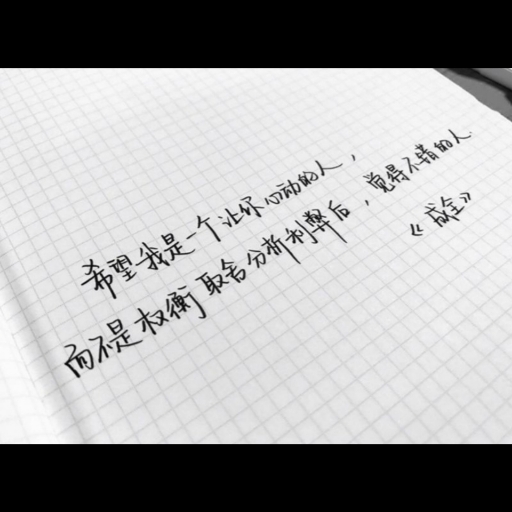 希望我是一个让你心动的人，
而不是权衡取舍分析利弊后，觉得不错的人.
《成全》